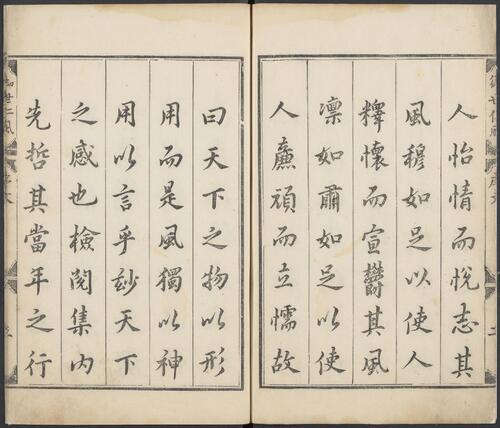 人怡情而悅志其
風穆如足以使人
釋懷而宣鬱其風
凛如肅如足以使
人廉頑而立懦故
曰天下之物以形
用而是風獨以神
用以言乎玅天下
之感也檢閱集内
先哲其當年之行